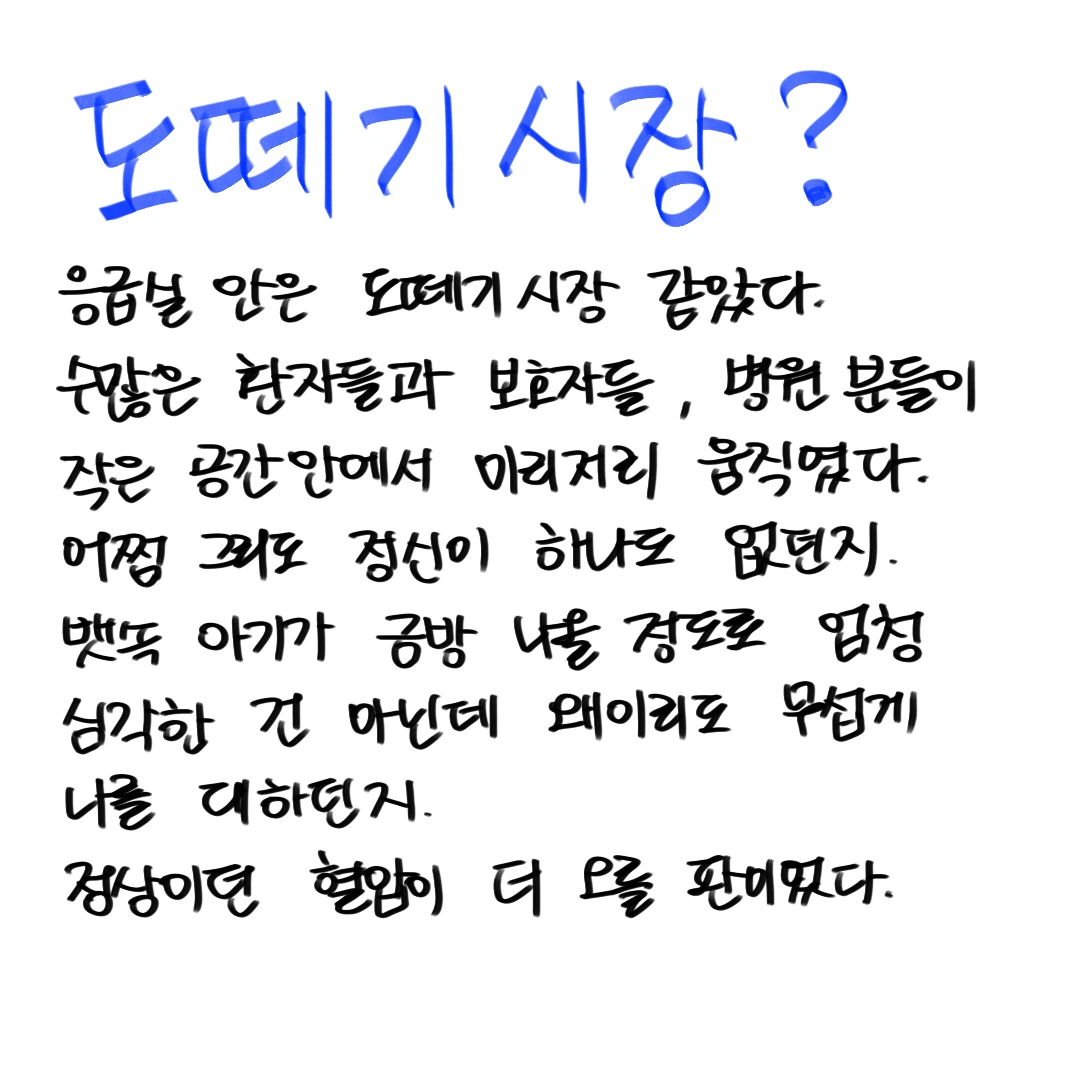 도떼기 시장?
응급실 안은 도떼기 시장 같았다.
수많은 환자들과 보호자들, 병원 분들이
작은 공간 안에서 이리저리 움직였다.
어쩜 그리도 정신이 하나도 없던지.
뱃속 아기가 금방 나올 정도로 엄청
심각한 건 아닌데 왜이리도 무섭게
나를 대하던지.
정상이던 혈압이 더 오를 판이었다.